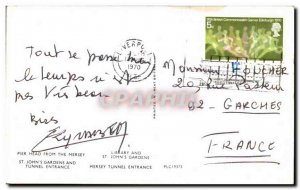 9th British Commonwealth Games Edinburgh 1970
LIVERPOOL
1970
Tout se passe bien
le temps n'est
pas très beau.
Bises
Monsieur F. BOUCHER
20 rue Pasteur
92 - GARCHES
FRANCE
PIER HEAD FROM THE MERSEY
ST. JOHN'S GARDENS AND
TUNNEL ENTRANCE
LIBRARY AND
ST. JOHN'S GARDENS
MERSEY TUNNEL ENTRANCE
PLC/7373